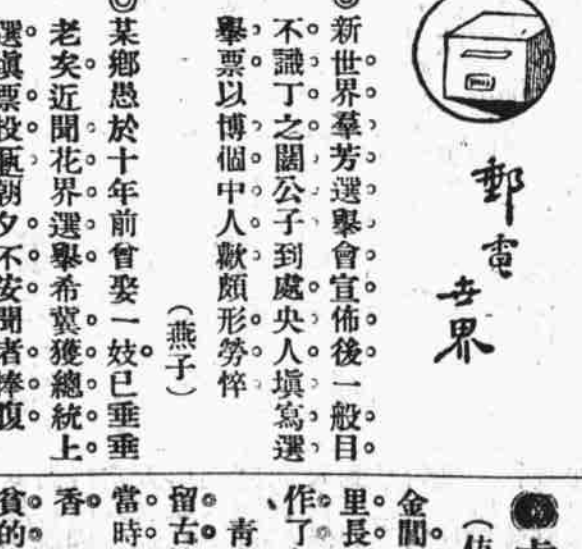 郵電世界
◎新世界羣芳選舉會宣佈後一般目
不識丁之闊公子到處央人塡寫選
舉票以博個中人歡頗形勞悴
(燕子)
◎某鄕愚於十年前曾娶一妓已垂垂
老矣近聞花界選舉希冀獲總統上
選眞票投匭朝夕不安聞者捧腹
金閶
里長
作了
、青
留古
當時
香
貧的